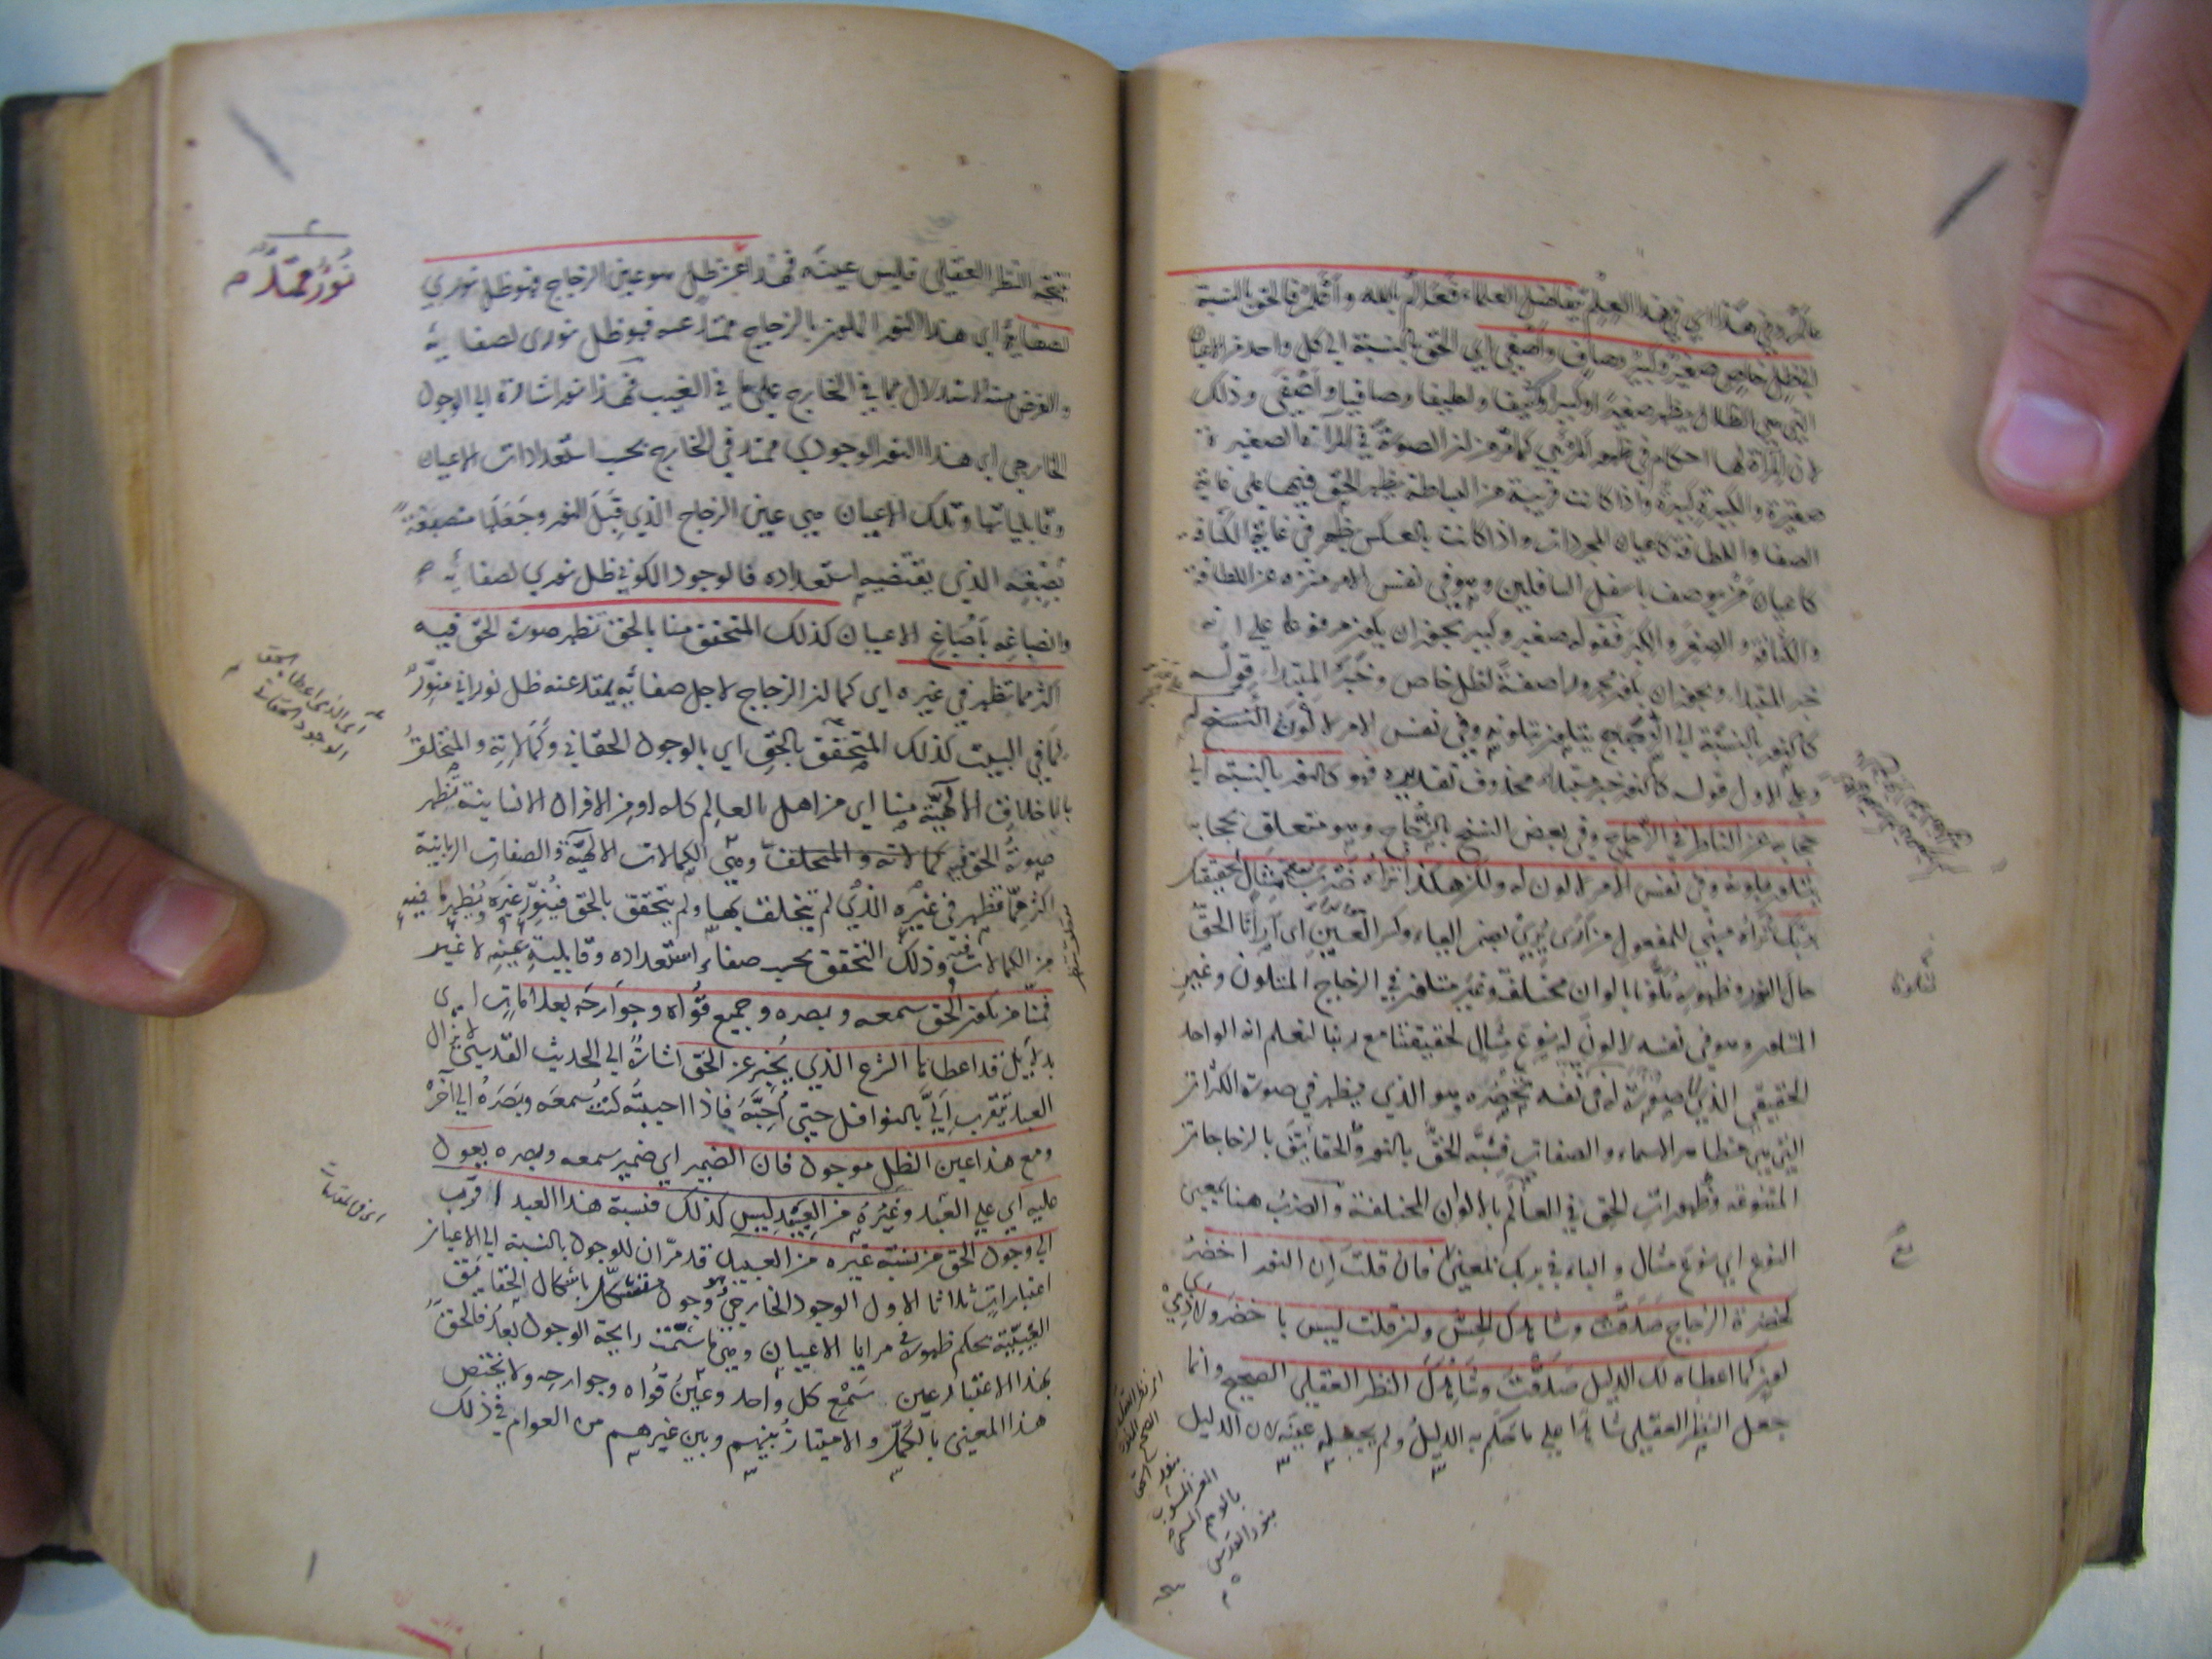 عالم وفي هذا اي في هذا العلم يتفاضل العلماء فعالم بالله وأعلم فالحق بالنسبة
الى ظل خاص صغير وكبير وصاف وأصفى اي الحق بالنسبة الى كل واحد من الاعيان
التي هي الظلال يظهر صغيرا وكبيرا وكثيفا ولطيفا وصافيا وأصفى وذلك
لان المرآة لها احكام في ظهور المرئي كما مر من ان الصورة في المرآة الصغيرة
صغيرة والكبيرة كبيرة واذا كانت قريبة من البساطة يظهر الحق فيها على غاية
الصفا واللطافة كاعيان المجردات واذا كانت بالعكس يظهر في غاية الكثافة
كاعيان من يوصف باسفل السافلين وهو في نفس الامر منزه عن اللطافة
والكثافة والصغر والكبر فقوله صغير وكبير يجوز ان يكون مرفوعا على انه
خبر المبتدا ويجوز ان يكون مجرورا صفة لظل خاص وخبر المبتدا قوله
كالنور بالنسبة الى الزجاج يتلون بتلونه وفي نفس الامر لا لون له
وعلى الاول قوله كالنور خبر مبتدا محذوف تقديره فهو كالنور بالنسبة الى
حجابه عن الناظر في الزجاج وفي بعض النسخ بالزجاج وهو متعلق بحجابه
يتلون بلونه وفي نفس الامر لا لون له ولكن هكذا تراه ضرب مثال لحقيقتك
بربك تراه مبني للمفعول من أرى يري بضم الياء وكسر العين اي أرانا الحق
حال النور وظهوره تلونا بالوان مختلفة وغير متلون في الزجاج المتلون وغير
المتلون وهو في نفسه لا لون له نوع مثال لحقيقتنا مع ربنا لنعلم انه الواحد
الحقيقي الذي لا صورة له في نفسه تحصره وهو الذي يظهر في صورة الكثرات
التي هي مظاهر الاسماء والصفات فشبه الحق بالنور والحقائق بالزجاجات
المتنوعة وظهورات الحق في العالم بالالوان المختلفة والضرب هنا بمعنى
النوع اي نوع مثال والباء في بربك بمعنى مع فان قلت ان النور اخضر
لخضرة الزجاج صدقت وشاهدك الحس وان قلت ليس باخضر ولا ذي
لون كما اعطاه لك الدليل صدقت وشاهدك النظر العقلي الصحيح وانما
جعل النظر العقلي شاهدا على ما حكم به الدليل ولم يجعله عينه لان الدليل
نور ممتد
نتيجة النظر العقلي فليس عينه فهذا نور ممتد عن ظل هو عين الزجاج فهو ظل نوري
لصفائه اي هذا النور الملون بالزجاج ممتد عنه فهو ظل نوري لصفائه
والغرض منه الاستدلال بما في الخارج على ما في الغيب فهذا نور اشارة الى الوجود
الخارجي اي هذا النور الوجودي ممتد في الخارج بحسب استعدادات الاعيان
وقابلياتها وتلك الاعيان هي عين الزجاج الذي قبل النور وجعلها منصبغة
بصبغه الذي يقتضيه استعداده فالوجود الكوني ظل نوري لصفائه
وانصباغه بأصباغ الاعيان كذلك المتحقق منا بالحق تظهر صورة الحق فيه
اكثر مما تظهر في غيره اي كما ان الزجاج لاجل صفائه يمتد عنه ظل نوراني منور
لما في البيت كذلك المتحقق بالحق اي بالوجود الحقاني وكمالاته والمتخلق
بالاخلاق الالهية منا اي من اهل العالم كله او من الافراد الانسانية تظهر
صورة الحق فيه كمالاته والمتخلق وهي الكمالات الالهية والصفات الربانية
اكثر مما تظهر في غيره الذي لم يتخلق بها ولم يتحقق بالحق فينور غيره ويظهر ما فيه
من الكمالات وذلك التحقق بحسب صفاء استعداده وقابلية عينه لا غير
فمنا من يكون الحق سمعه وبصره وجميع قواه وجوارحه بعلامات اي
بدلايل قد اعطانا الشرع الذي يخبر عن الحق اشارة الى الحديث القدسي لا يزال
العبد يتقرب الي بالنوافل حتى أحبه فاذا احببته كنت سمعه وبصره الى آخره
ومع هذا عين الظل موجود فان الضمير اي ضمير سمعه وبصره يعود
عليه اي على العبد وغيره من العبيد ليس كذلك فنسبة هذا العبد اقرب
الى وجود الحق من نسبة غيره من العبيد قد مر ان للوجود بالنسبة الى الاعيان
اعتبارات ثلاثا الاول الوجود الخارجي وجود متشكل باشكال الحقايق
الغيبية بحكم ظهوره في مرايا الاعيان وهي ما شمت رايحة الوجود بعد فالحق
بهذا الاعتبار عين سمع كل واحد وعين قواه وجوارحه ولا يختص
هذا المعنى بالكمل والامتياز بينهم وبين غيرهم من العوام في ذلك